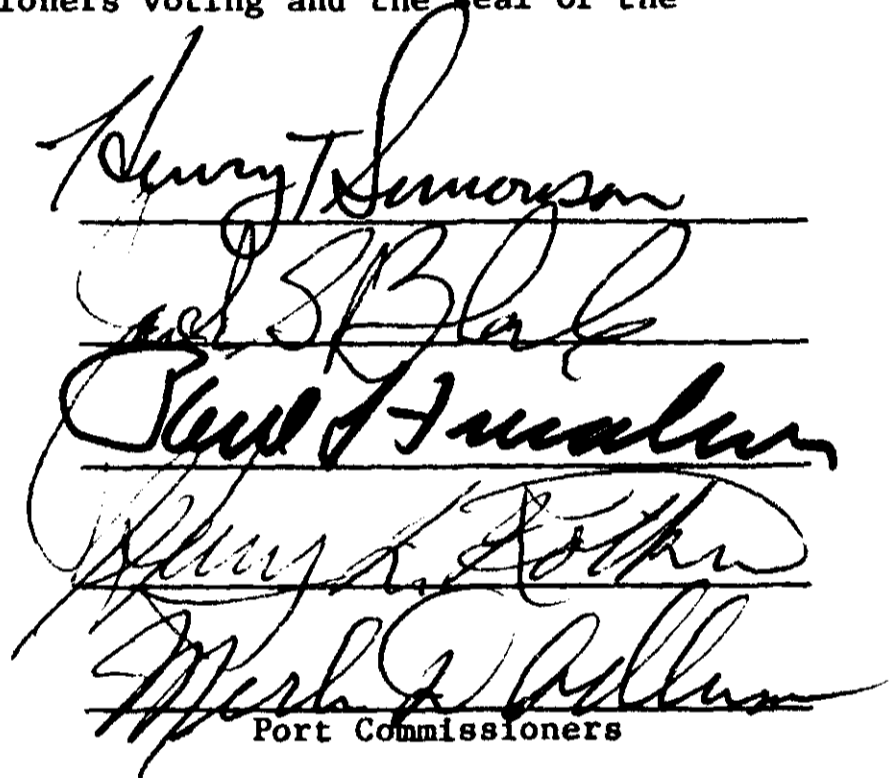 ioners voting and the seal of the
Henry T Simonson
Jack S Block
Paul
Henry L. Kotkins
Merle D Adlum
Port Commissioners